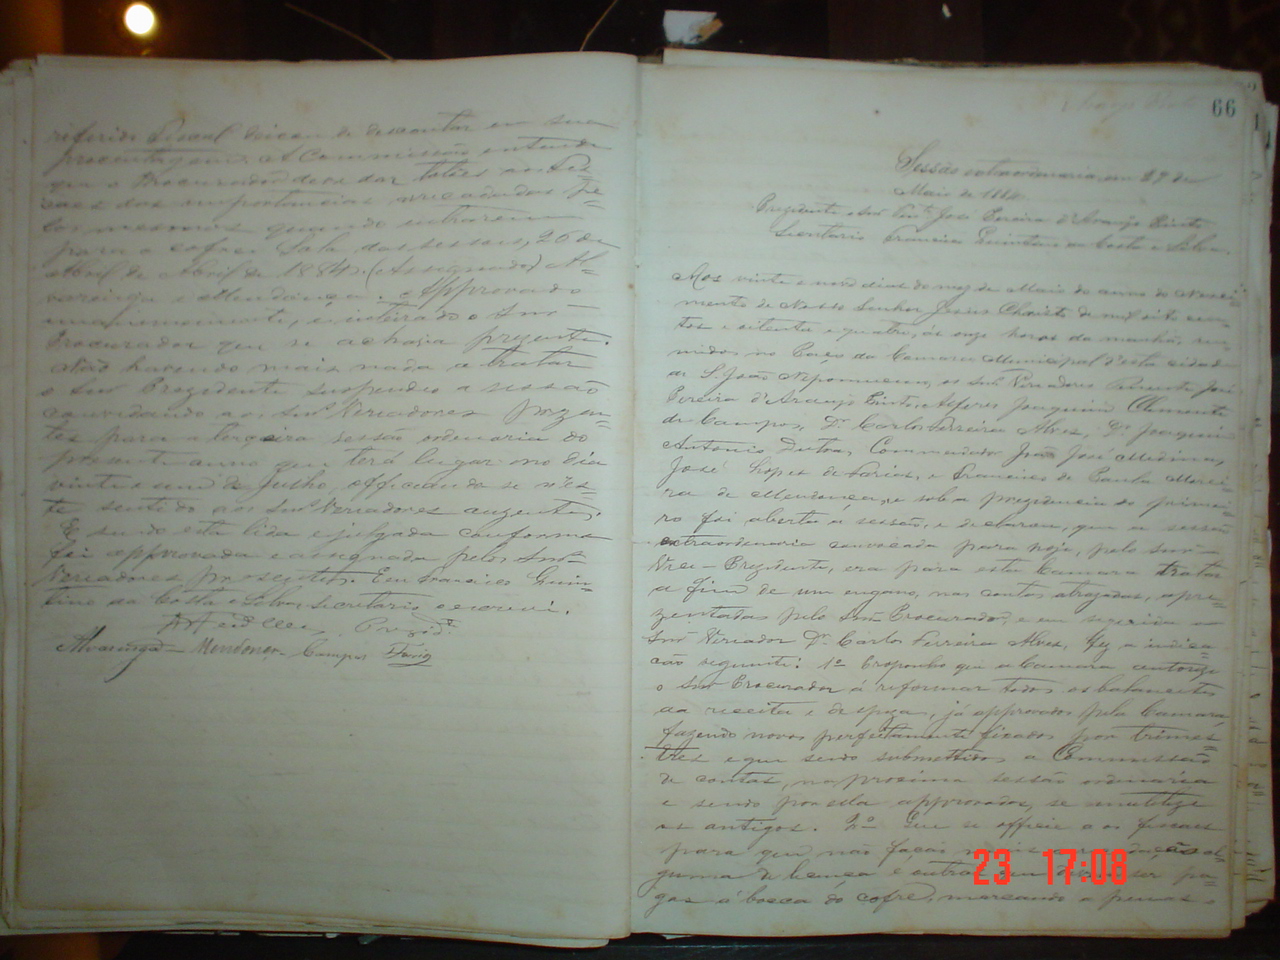 referido Fiscal deixou de descontar em sua
procentagem. A Commissão entende
que o Procurador deve dar talões aos Fis=
caes das importancias arrecadadas pe=
los mesmos quando entrarem
para o cofre. Sala das sessões, 26 de
Abril de Abril de 1884. (Assignados) Al=
varenga e Mendonça. Approvado
unanimemente, e inteirado o Snr
Procurador que se achava prezente.
Não havendo mais nada a tratar
o Snr Prezidente suspendeo a sessão
convidando aos Snrs Vereadores prezen=
tes para a terceira sessão ordenaria do
presente anno que terá lugar no dia
vinte e um de Julho, officiando se nes=
te sentido aos Snrs Vereadores auzentes.
E sendo esta lida e julgada conforme
foi approvada e assignada pelos Snrs
Vereadores prezentes. Eu Francisco Quin=
tino da Costa e Silva, secretario o escrevi.
Prezide
Alvarenga - Mendonça - Campos Faria
66
Araujo Pinto
Sessão extraordinaria em 29 de
Maio de 1884
Prezidente o Snr Tente José Pereira d'Araujo Pinto
Secretario Francisco Quintino da Costa e Silva.
Aos vinte e nove dias do mez de Maio do anno do Nasci=
mento de Nosso Senhor Jesus Christo de mil oito cen=
tos e oitenta e quatro, ás onze horas da manhã, reu=
nidos no Paço da Camara Municipal d'esta cidade
de S. João Nepomuceno, os Snrs Vereadores Tenente José
Pereira d'Araujo Pinto, Alferes Joaquim Clemente
de Campos, Dr Carlos Ferreira Alves, Dr Joaquim
Antonio Dutra, Commendador José Medina,
José Lopes de Faria, e Francisco de Paula Morei=
ra de Mendonça, e sob a prezidencia do primei=
ro foi aberta a sessão, e declarou, que a sessão
extraordinaria convocada para hoje, pelo Snr
Vice-Prezidente, era para esta Camara tratar
a fim de um engano, nas contas atrazadas, apre=
zentadas pelo Snr Procurador, e em seguida o
Snr Vereador Dr Carlos Ferreira Alves, fez a indica=
ção seguinte: 1º Proponho que a Camara autorize
o Snr Procurador á reformar todos os balancetes
da receita e despeza, já approvados pela Camara,
fazendo novos perfeitamente por trimes=
tres e que sendo submettidos a Commissão
de contas, na proxima sessão ordinaria
e sendo por ella approvados, se inutilize
os antigos. 2º Que se officie a os fiscaes
para que não fação mais arrecadação al=
guma de licença e outros ser pa=
gos á bocca do cofre, marcando a penas
23 17:08